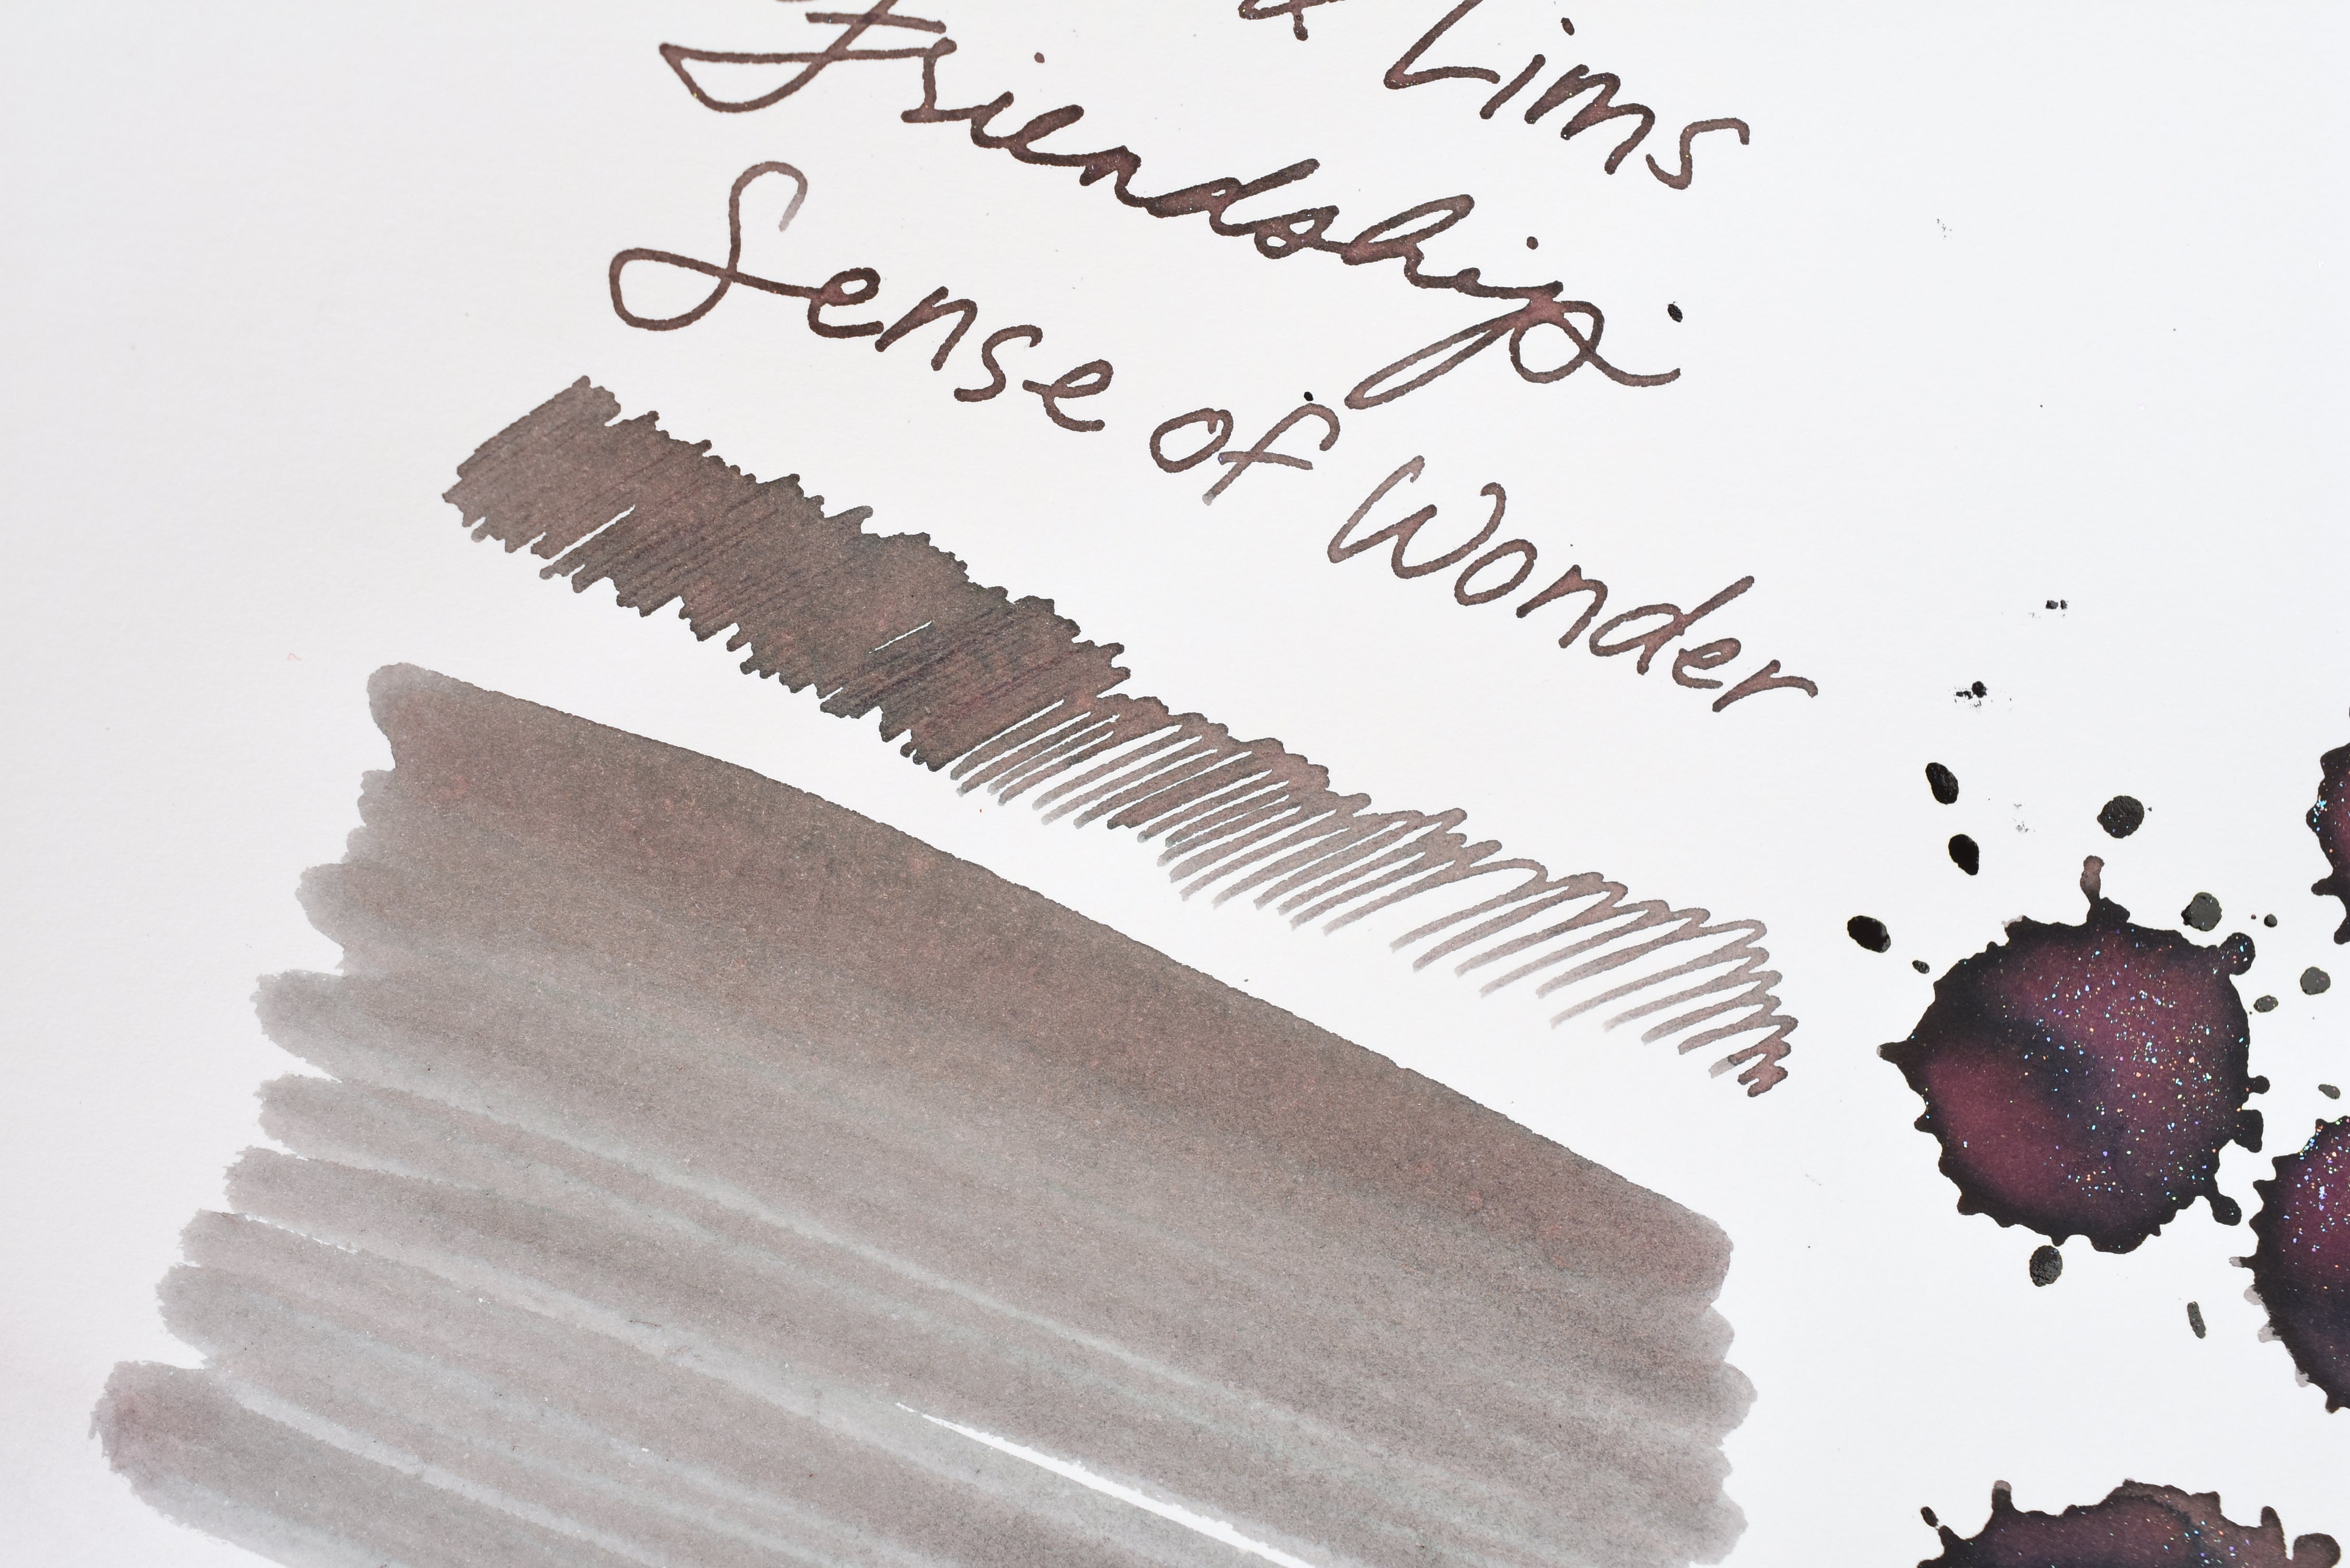 & Lims
Friendship
Sense of Wonder